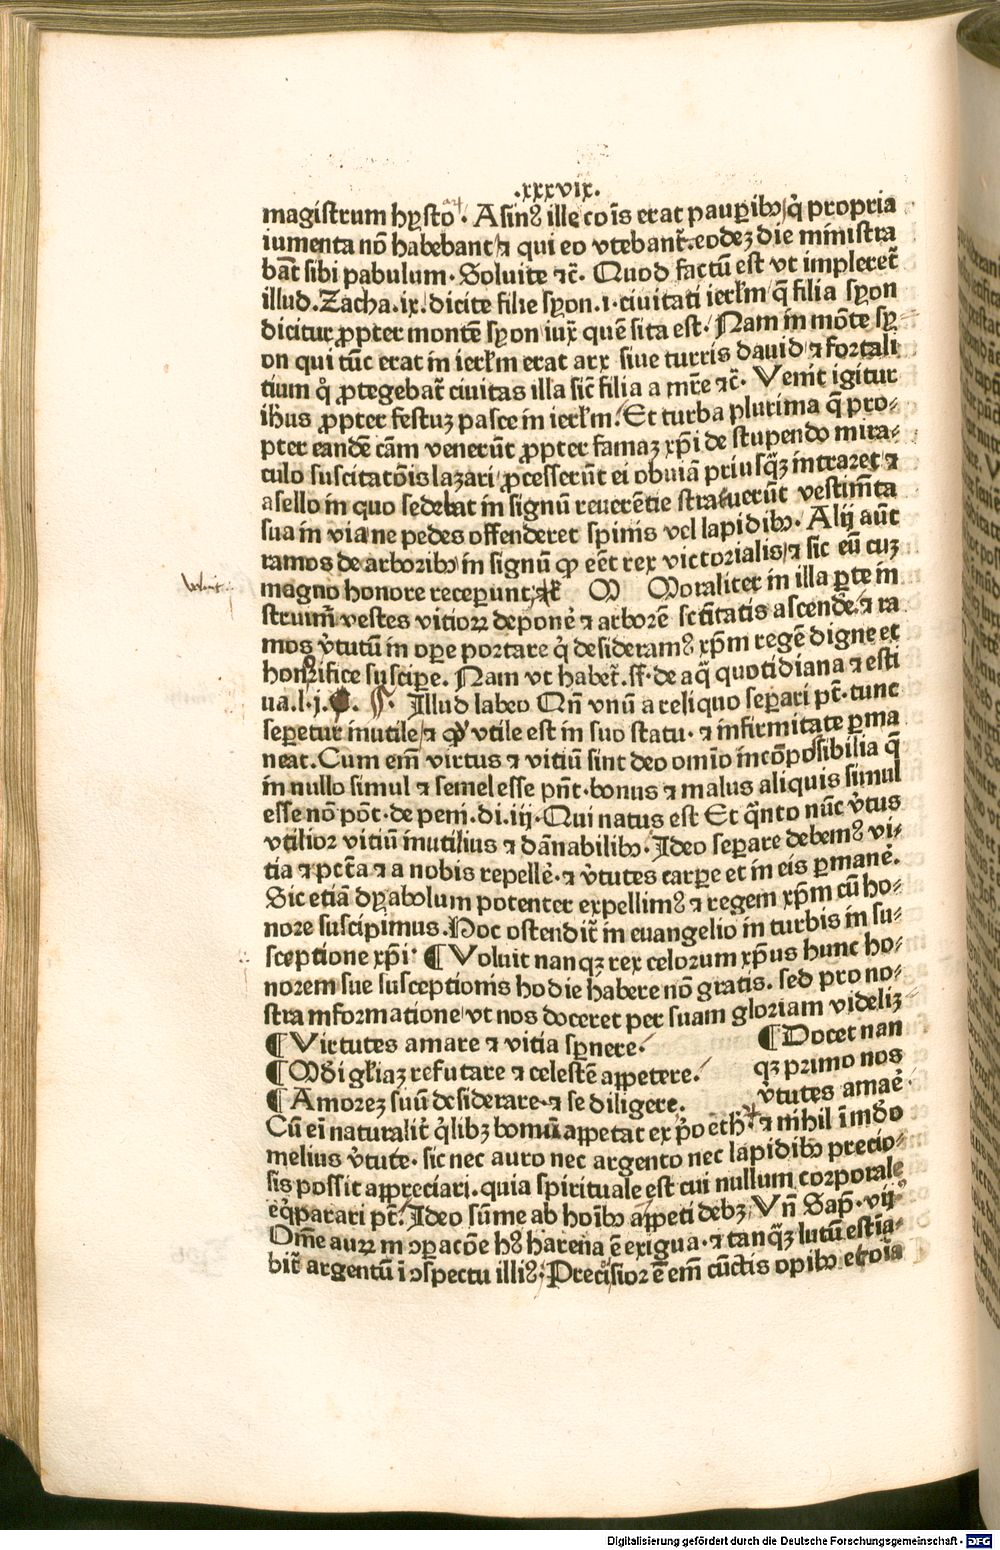 .xxxvix.
magistrum hysto. Asinꝰ ille cōis erat pauꝑibꝰ/q̇ propria
iumenta nō habebant/⁊ qui eo vtebant᷑.eodeꝫ die ministra
bāt sibi pabulum. Soluite ⁊c̄. Quod factū est vt impleret᷑
illud.Zacha.ix.dicite filie syon.i.ciuitati ierl'm q̄ filia syon
dicitur ꝓpter montē syon iux̄ quē sita est. Nam in mōte sy⸗
on qui tūc erat in ierl'm erat arx siue turris dauid ⁊ fortali
tium q̇ ꝓtegebat᷑ ciuitas illa sic̄ filia a mr̄e ⁊c̄. Venit igitur
ih̄us ꝓpter festuꝫ pasce in ierl'm. Et turba plurima q̄ pro⸗
pter eandē cām venerūt ꝓpter famaꝫ xp̄i de stupendo mira⸗
culo suscitatōis lazari/ꝓcesserūt ei obuiā priusq̄ꝫ intraret ⁊
asello in quo sedebat in signū reuerētie strauerūt vestim̄ta
sua in via ne pedes offenderet spinis vel lapidibꝰ. Alij aūt
ramos de arboribꝰ in signū ꝙ eēt rex victorialis/⁊ sic eū cuꝫ
wolnit
magno honore receperunt/⁊c̄ M Moraliter in illa ꝑte in
strum̄r vestes vitioꝝ deponē ⁊ arborē sc̄titatis ascendē.⁊ ra
mos v̄tutū in oꝑe portare q̇ desideramꝰ xp̄m regē digne et
honorifice susciꝑe. Nam vt habet᷑.ff.de aq̄ quotidiana ⁊ esti
ua.l.j. §. Illud labeo Qn̄ vnū a reliquo seꝑari pt̄.tunc
seꝑetur inutile/⁊ ꝙ vtile est in suo statu.⁊ infirmitate ꝑma
neat.Cum em̄ virtus ⁊ vitiū sint deo omīo incōpossibilia q̄
in nullo simul ⁊ semel esse pn̄t.bonus ⁊ malus aliquis simul
esse nō pōt.de peni.di.iij.Qui natus est Et q̄nto nūc v̄tus
vtilior vitiū inutilius ⁊ dānabilibꝰ. Ideo seꝑare debemꝰ vi⸗
tia ⁊ pctā ⁊ a nobis repellē.⁊ v̄tutes carꝑe et in eis ꝑmanē.
Sic etiā dyabolum potenter expellimꝰ ⁊ regem xp̄m cū ho⸗
nore suscipimus.Hoc ostendit᷑ in euangelio in turbis in su⸗
sceptione xp̄i. ¶ Voluit nanqꝫ rex celorum xp̄us hunc ho⸗
norem sue susceptionis hodie habere nō gratis. sed pro no⸗
stra informatione/vt nos doceret per suam gloriam videliꝫ
¶ Virtutes amare ⁊ vitia sꝑnere.
¶ Mūdi gl'iaꝫ refutare ⁊ celestē appetere.
¶ Amoreꝫ suū desiderare.⁊ se diligere.
¶ Docet nan
qꝫ primo nos
v̄tutes amaē.
Cū ei naturalit᷑ q̇libꝫ bonū appetat ex pō eth. ⁊ nihil ī mdō
melius v̄tute. sic nec auro nec argento nec lapidibꝰ precio⸗
sis possit appreciari.quia spirituale est cui nullum corporale
eq̇parari pt̄. Ideo sūme ab hoībꝰ appeti debꝫ Vn̄ Sap̄.vij
Om̄e auꝝ in ꝯꝑacōe hꝰ harena ē exigua.⁊ tanq̄ꝫ lutū estīa⸗
bit᷑ argentū ī ꝯspectu illiꝰ. Precisior ē em̄ cūctis opibꝰ et oīa
Digitalisierung gefördert durch die Deutsche Forschungsgemeinschaft - DFG